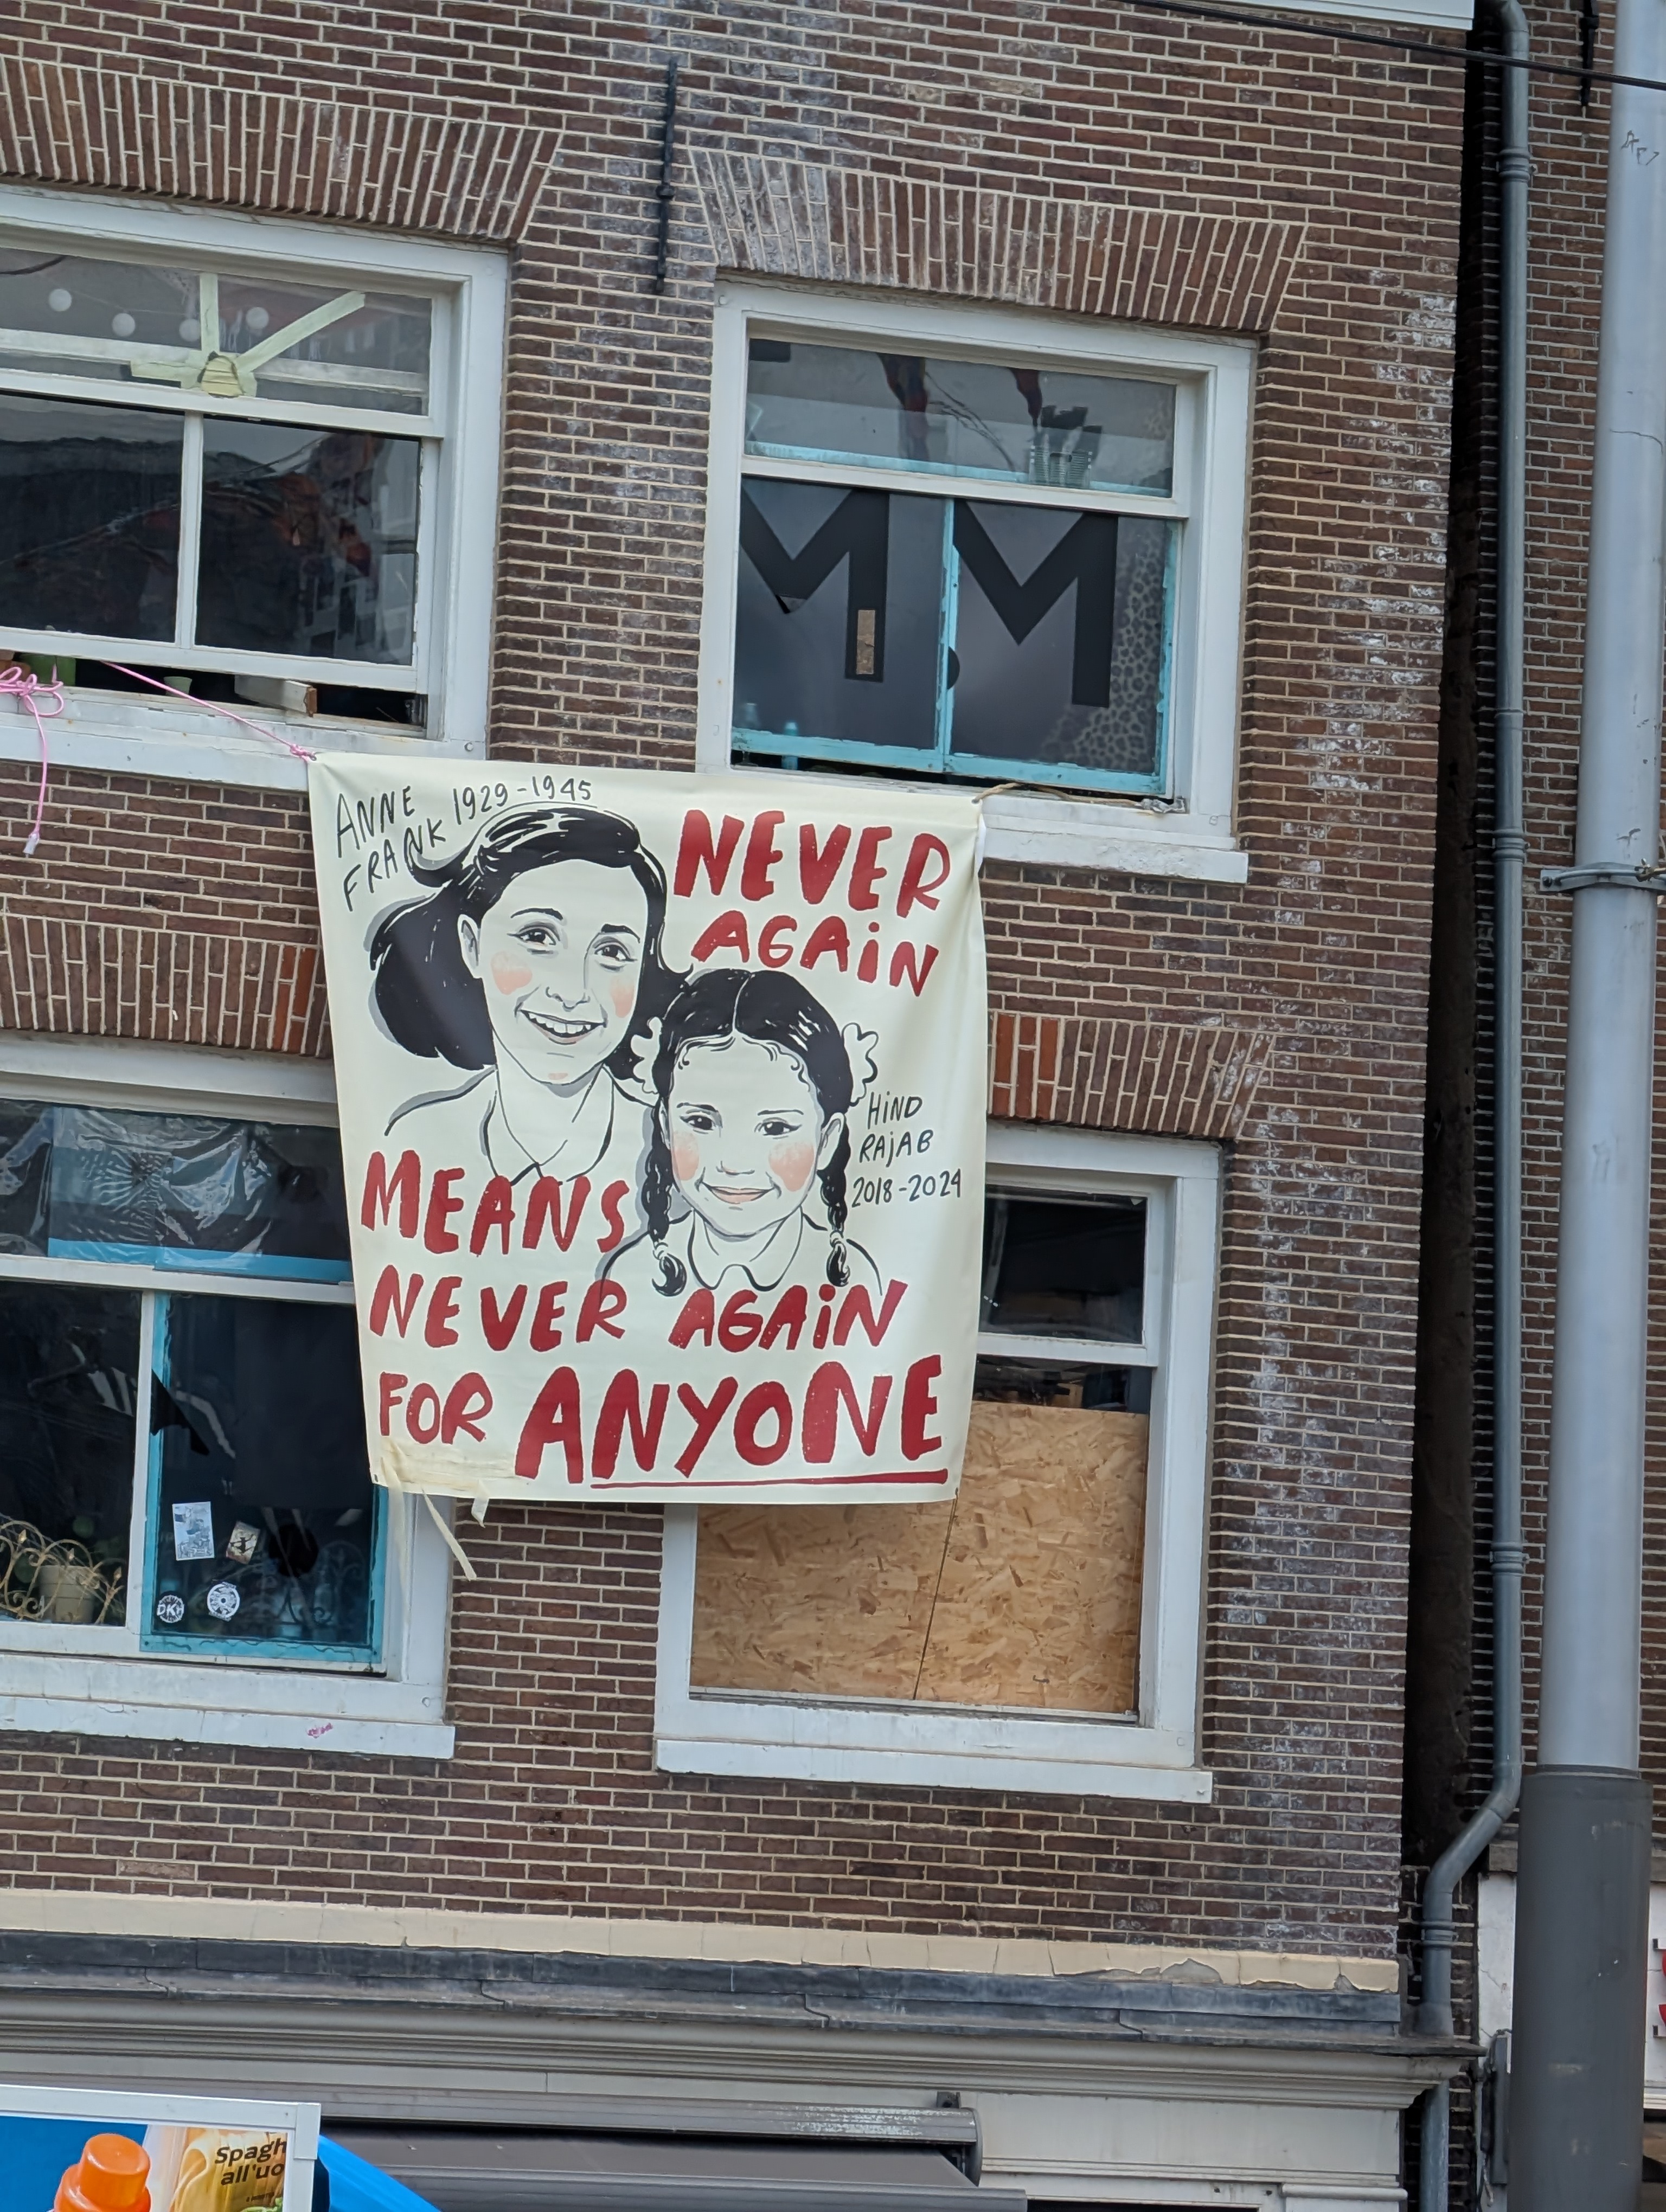 M.M
ANNE
FRANK 1929-1945
NEVER
AGAiN
HiND
RAjAB
2018-2024
MEANS
NEVER AGAiN
FOR ANYONE
DKH
Spagh
all'uo